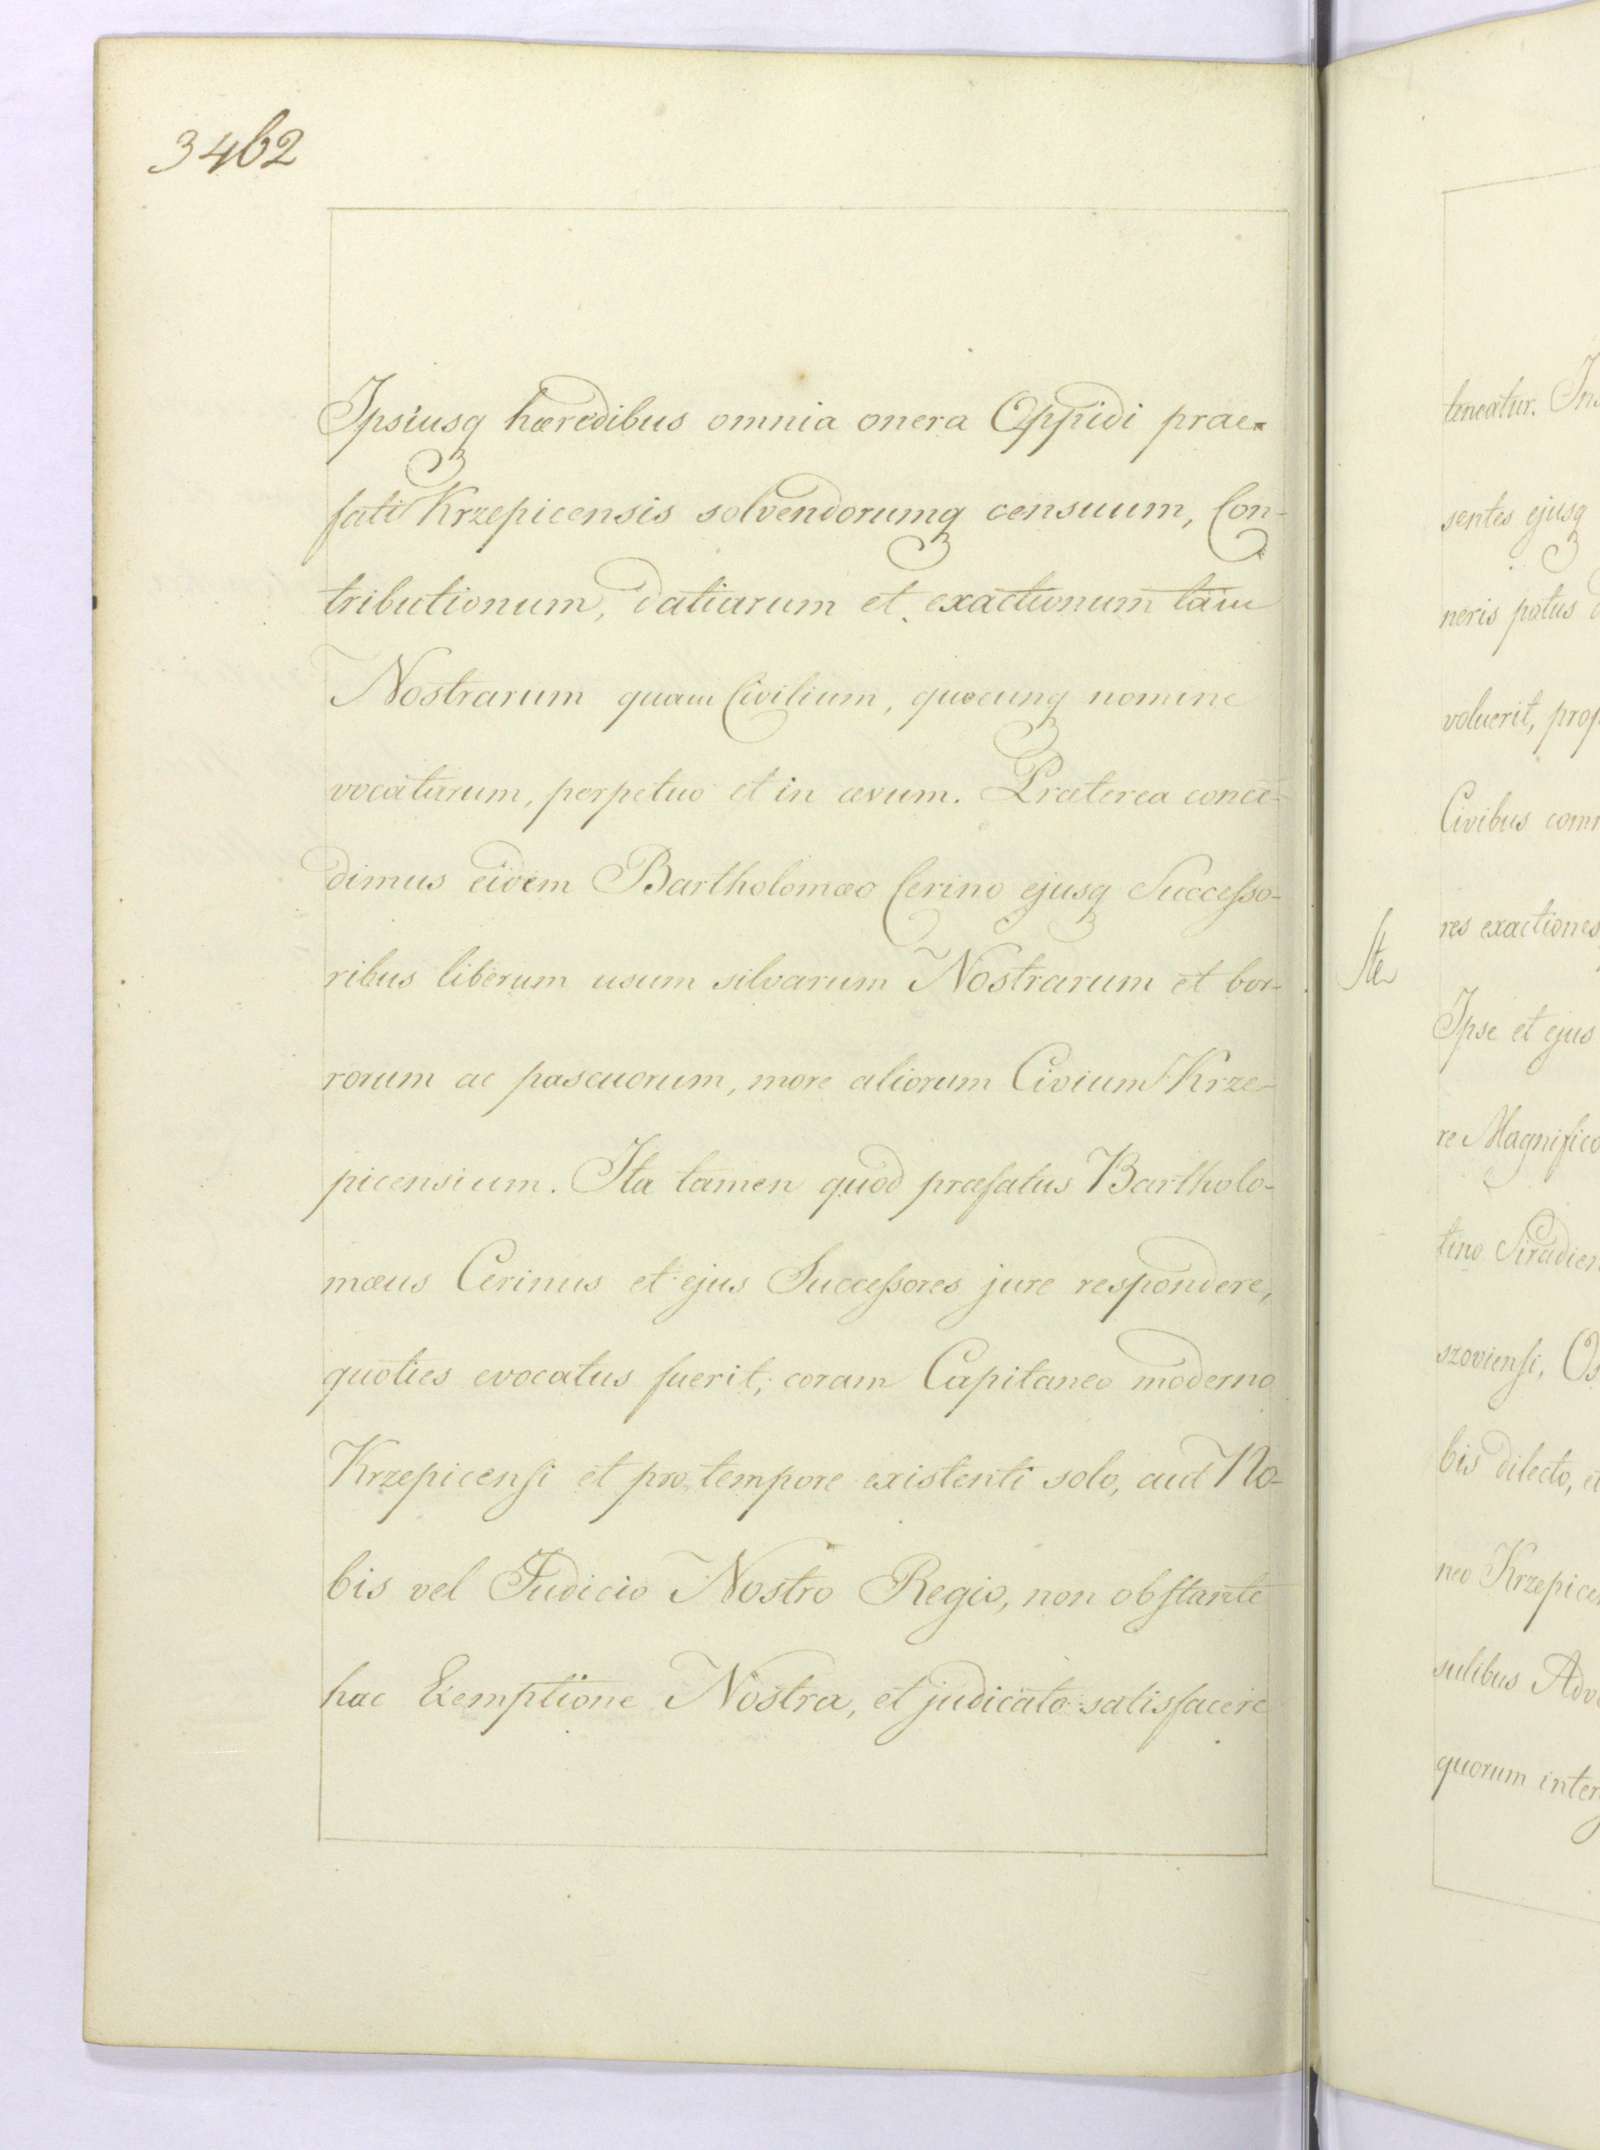 3462
Ipsiusq hæredibus omnia onera Oppidi prae-
fati Krzepicensis solvendorumq censuum, Con-
tributionum, datiarum et exactionum tam
Nostrarum quam Civilium, quocunq nomine
vocatarum, perpetuo et in ævum. Præterea conce-
dimus eidem Bartholomæo Cerino ejusq Successo-
ribus liberum usum silvarum Nostrarum et bor-
rorum ac pascuorum, more aliorum Civium Krze-
picensium. Ita tamen quod præfatus Bartholo-
mæus Cerinus et ejus Successores jure respondere,
quoties evocatus fuerit, coram Capitaneo moderno
Krzepicensi et pro tempore existenti solo, aut No-
bis vel Judicio Nostro Regio, non obstante
hac Exemptione Nostra, et judicato satisfacere
teneatur.
sentes ejusq
neris potus
voluerit, prop
Civibus com
res exactiones
Ipse et ejus
re Magnifico
tino Siradien
szoviensi,
bis dilecto, et
neo Krzepice
sulibus Adv
quorum inter